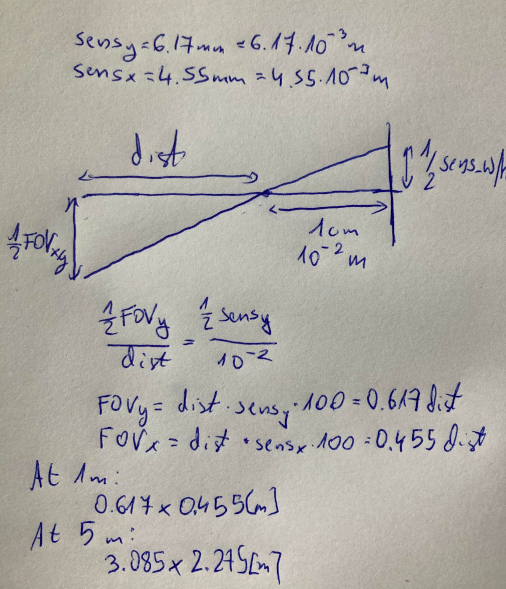 sensy=6.17mm=6.17·10⁻³m
sensx=4.55mm=4.55·10⁻³m
dist
1/2 sens_w/h
1/2 FOVxy
1cm
10⁻² m
1/2 FOVy / dist = 1/2 sensy / 10⁻²
FOVy = dist · sensy · 100 = 0.617 dist
FOVx = dist · sensx · 100 = 0.455 dist
At 1m:
0.617 x 0.455[m]
At 5 m:
3.085 x 2.275[m]